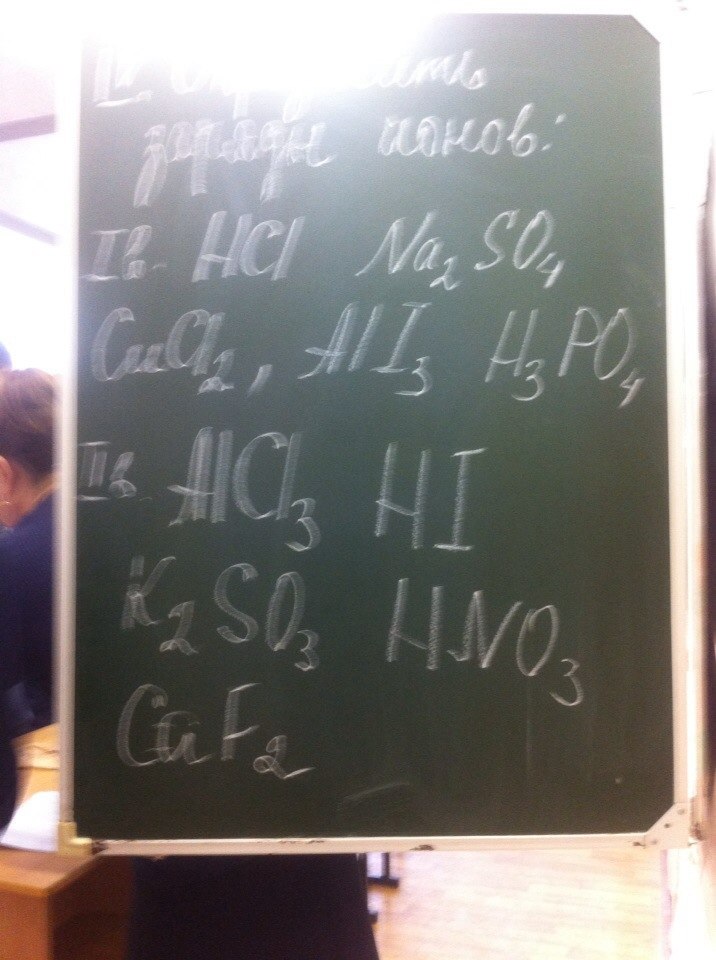 IV Определить
заряды ионов:
Iв. HCl Na₂SO₄
CuCl₂, AlI₃ H₃PO₄
IIв. AlCl₃ HI
K₂SO₃ HNO₃
CaF₂